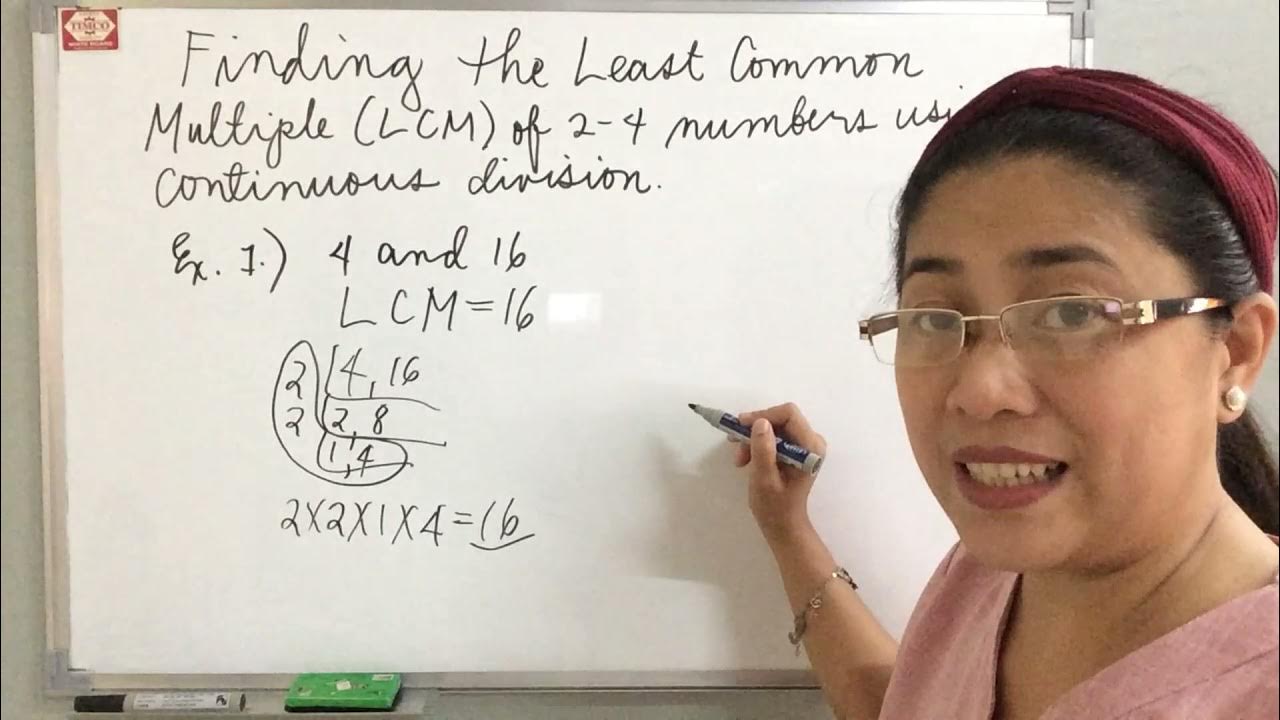 TIMCO
WHITE BOARD
Finding the Least Common
Multiple (LCM) of 2-4 numbers usi
continuous division.
Ex. 1.) 4 and 16
LCM=16
2 4, 16
2 2, 8
1, 4
2X2X1X4=16